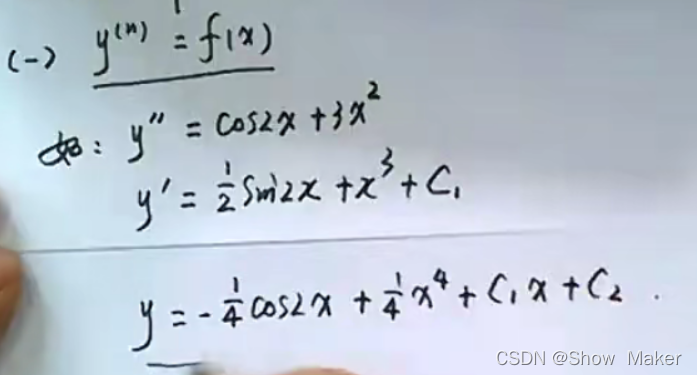 (一) y⁽ⁿ⁾ = f(x)
如: y″ = cos2x + 3x²
y′ = 1/2 sin2x + x³ + C₁
y = -1/4 cos2x + 1/4 x⁴ + C₁x + C₂ .
CSDN @Show Maker